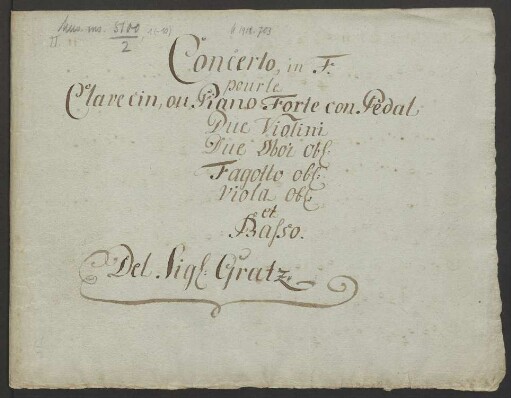 Mus. ms. 5100
2
Concerto, in F.
pour le
Clavecin, ou Piano Forte con Pedal
Due Violini
Due Oboi obl:
Fagotto obl:
Viola obl:
et
Basso.
Del Sigl: Gratz